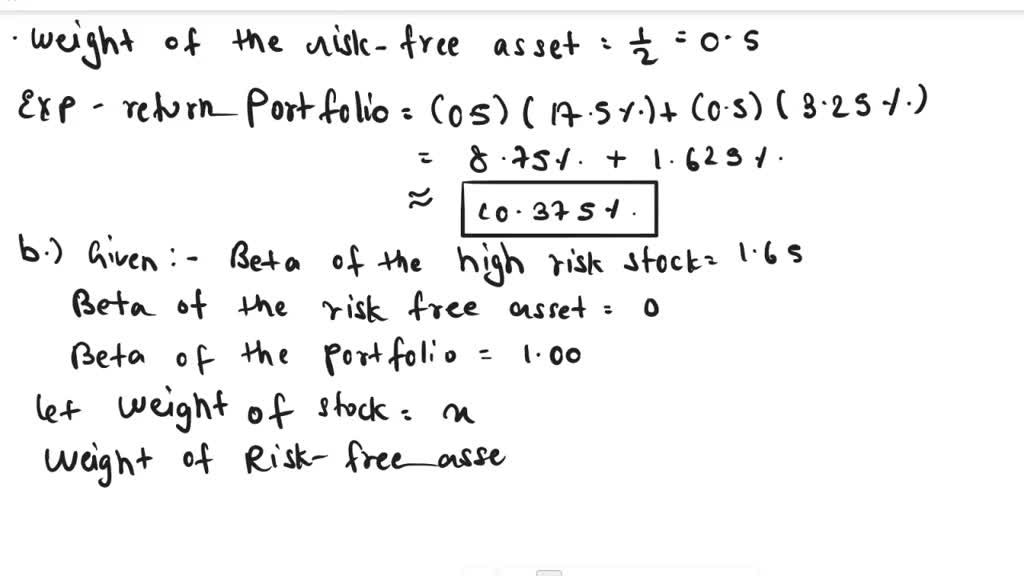 · Weight of the risk-free asset = 1/2 = 0.5
Exp - return Portfolio = (05) (17.5%) + (0.5) (3.25%)
= 8.75% + 1.625%.
≈ 10.375%.
b.) Given :- Beta of the high risk stock = 1.65
Beta of the risk free asset = 0
Beta of the portfolio = 1.00
let weight of stock = x
Weight of Risk-free asse